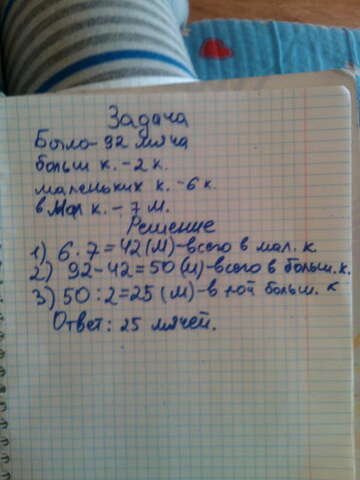 Задача
Было - 92 мяча
больш к. - 2 к.
маленьких к. - 6 к.
в мал к. - 7 м.
Решение
1) 6 · 7 = 42 (м) - всего в мал. к.
2) 92 - 42 = 50 (м) - всего в больш. к.
3) 50 : 2 = 25 (м) - в больш. к
Ответ: 25 мячей.